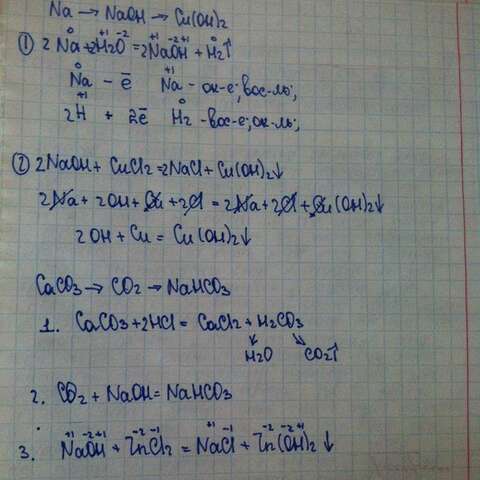 Na → NaOH → Cu(OH)₂
① 2Na⁰ + 2H₂⁺¹O⁻² = 2Na⁺¹O⁻²H⁺¹ + H₂⁰↑
Na⁰ - ē Na⁺¹ - ок-е; вос-ль;
2H⁺¹ + 2ē H₂⁰ - вос-е; ок-ль;
② 2NaOH + CuCl2 = 2NaCl + Cu(OH)2↓
2Na + 2OH + Cu + 2Cl = 2Na + 2Cl + Cu(OH)2↓
2OH + Cu = Cu(OH)2↓
CaCO3 → CO2 → NaHCO3
1. CaCO3 + 2HCl = CaCl2 + H2CO3
↓ ↘
H2O CO2↑
2. CO2 + NaOH = NaHCO3
3. Na⁺¹O⁻²H⁺¹ + Zn⁻²Cl₂⁻¹ = Na⁺¹Cl⁻¹ + Zn⁻²(O⁻²H⁺¹)₂↓